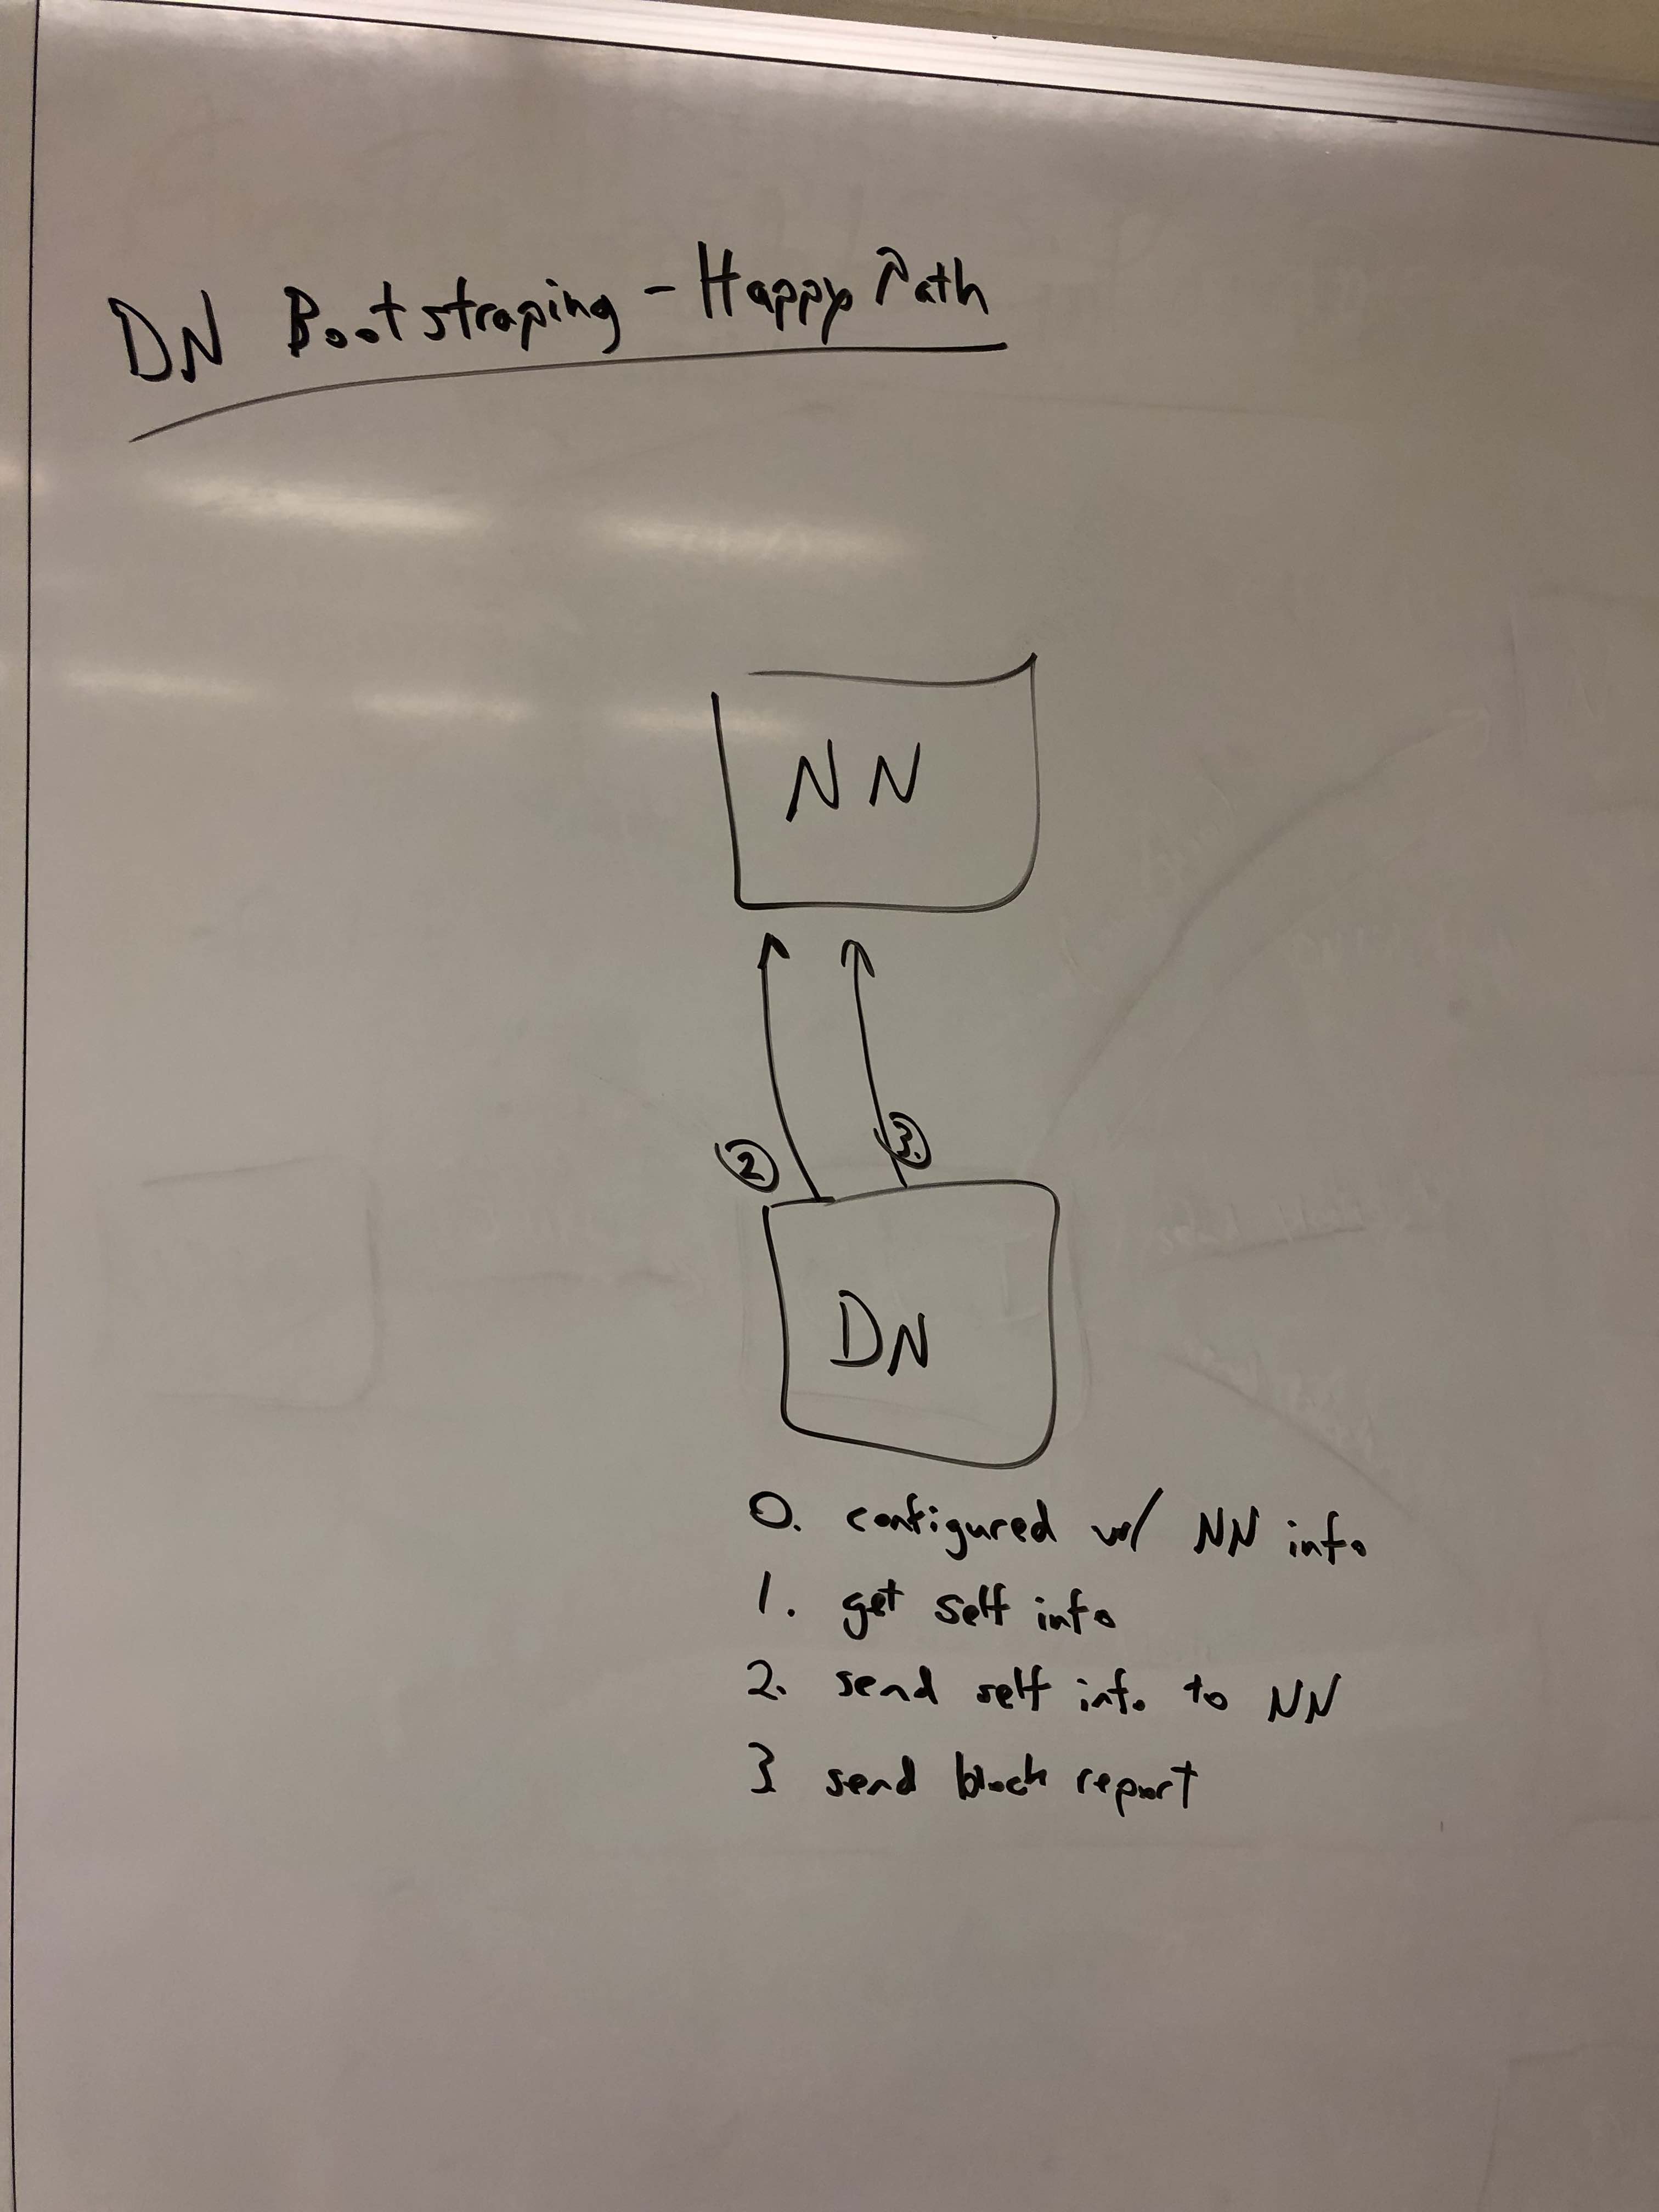 DN Bootstraping - Happy Path
NN
2 3.
DN
0. configured w/ NN info
1. get self info
2. send self info to NN
3 send block report